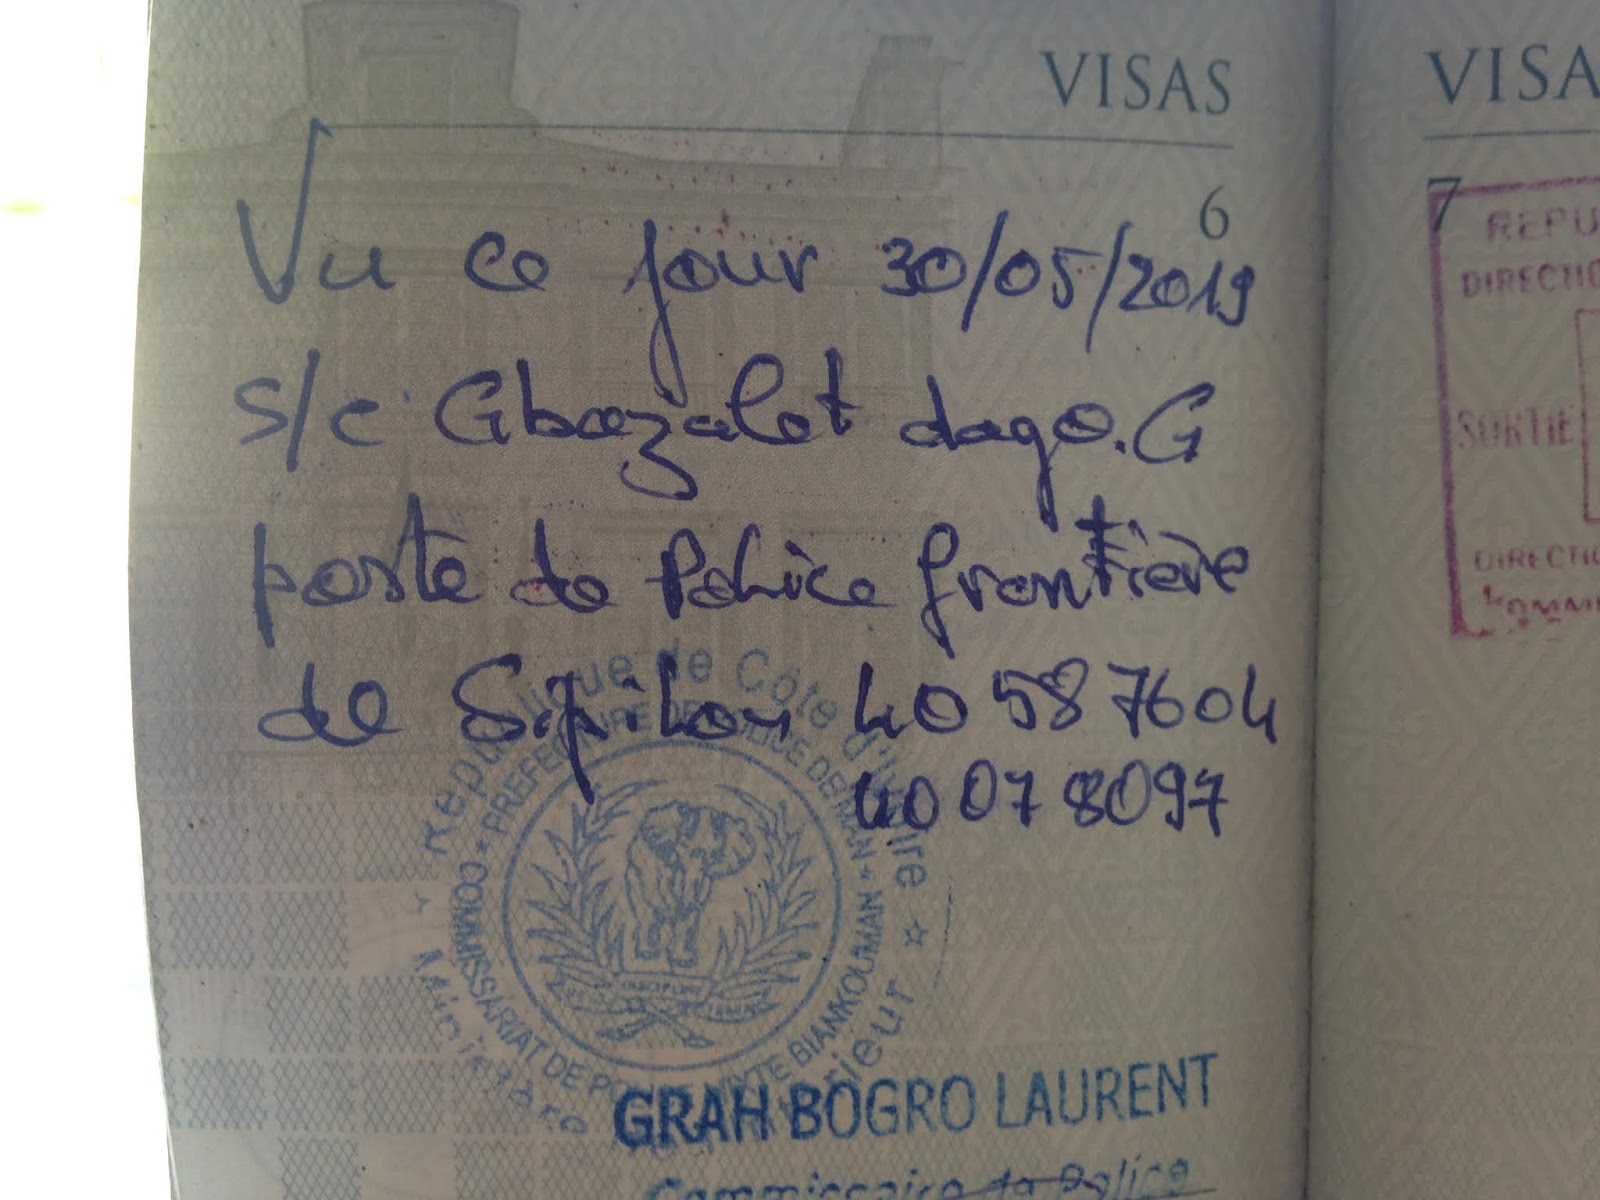 VISAS
6
Vu ce jour 30/05/2019
s/c Gbazalet dago.G
poste de Police frontière
de Sipilou 40 58 7604
40 07 8097
République de Côte d'Ivoire
PREFECTURE DE POLICE DE MAN
COMMISSARIAT DE POLICE
BIANKOUMAN
GRAH BOGRO LAURENT
Commissaire de Police
VISA
7
REPU
DIRECTIO
SORTIE
DIRECTIO